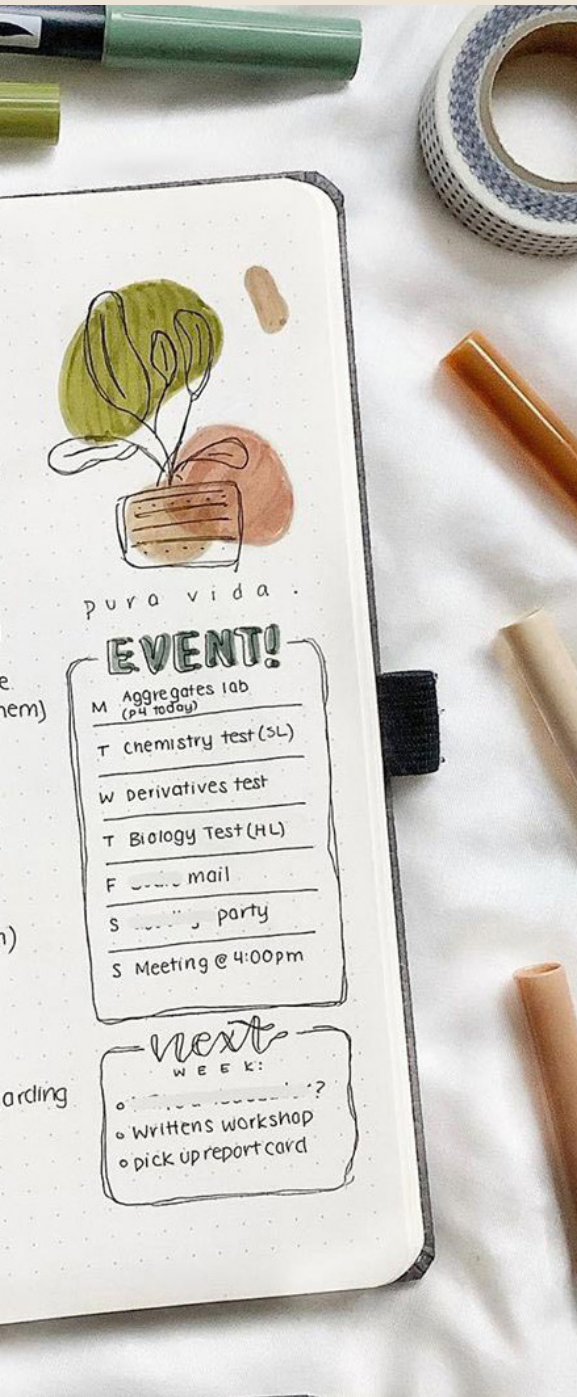 pura vida.
EVENT!
M Aggregates lab
(p4 today)
T Chemistry test (SL)
W Derivatives test
T Biology Test (HL)
F mail
S party
S Meeting @ 4:00pm
e
hem)
n)
arding
next
WEEK:
?
Writtens workshop
pick up report card